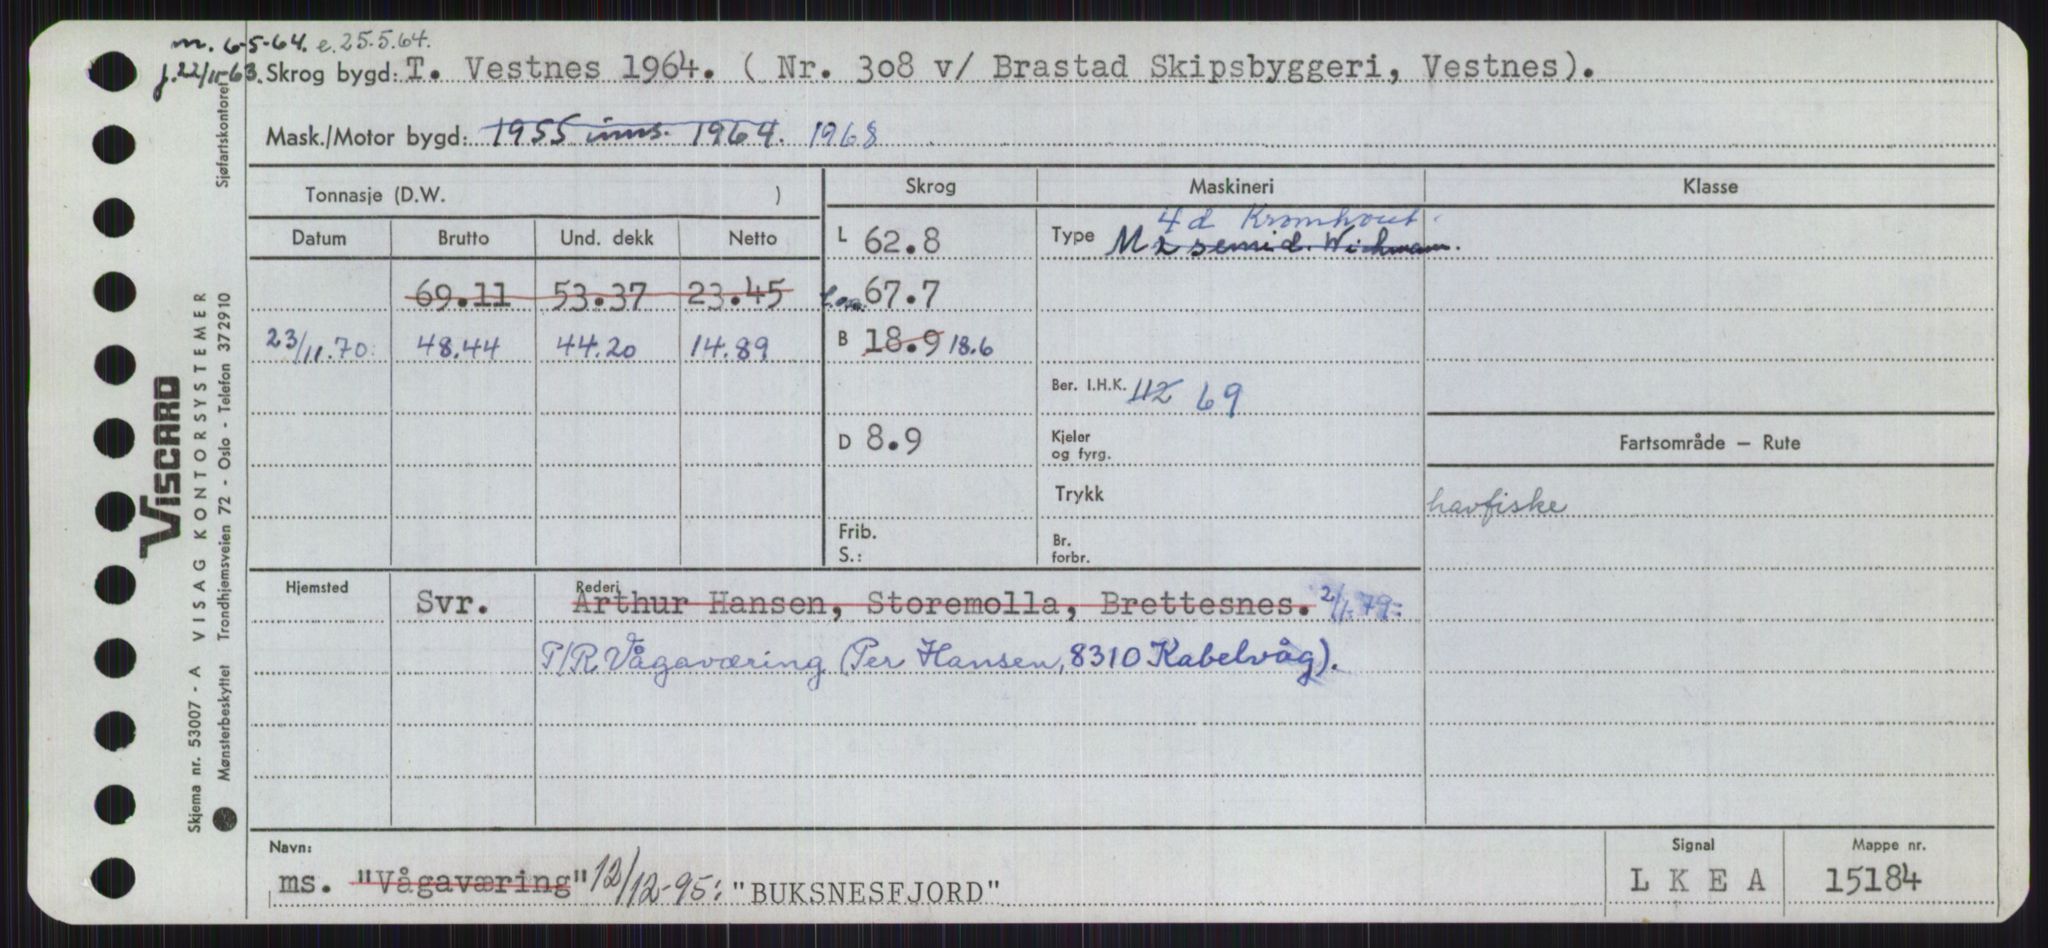 m. 6-5-64. e. 25.5.64.
j. 22/11-63. Skrog bygd: T. Vestnes 1964. ( Nr. 308 v/ Brastad Skipsbyggeri, Vestnes).
Mask./Motor bygd: 1955 inns. 1964. 1968
Tonnasje (D.W. )
Skrog
Maskineri
Klasse
Datum Brutto Und. dekk Netto
L 62.8
Type 4 d Kromhout.
M 2 semid. Wichmann.
69.11 53.37 23.45
l.o.a. 67.7
23/11.70. 48.44 44.20 14.89
B 18.9 18.6
Ber. I.H.K. 112 69
D 8.9
Kjeler
og fyrg.
Fartsområde – Rute
Trykk
havfiske
Frib.
S.:
Br.
forbr.
Hjemsted
Svr.
Rederi
Arthur Hansen, Storemolla, Brettesnes. 2/1.79:
P/R Vågaværing (Per Hansen, 8310 Kabelvåg).
Navn:
ms. "Vågaværing" 12/12-95: "BUKSNESFJORD"
Signal
L K E A
Mappe nr.
15184
Sjøfartskontoret
VISCARD
VISAG KONTORSYSTEMER
Skjema nr. 53007 - A
Mønsterbeskyttet Trondhjemsveien 72 - Oslo - Telefon 372910